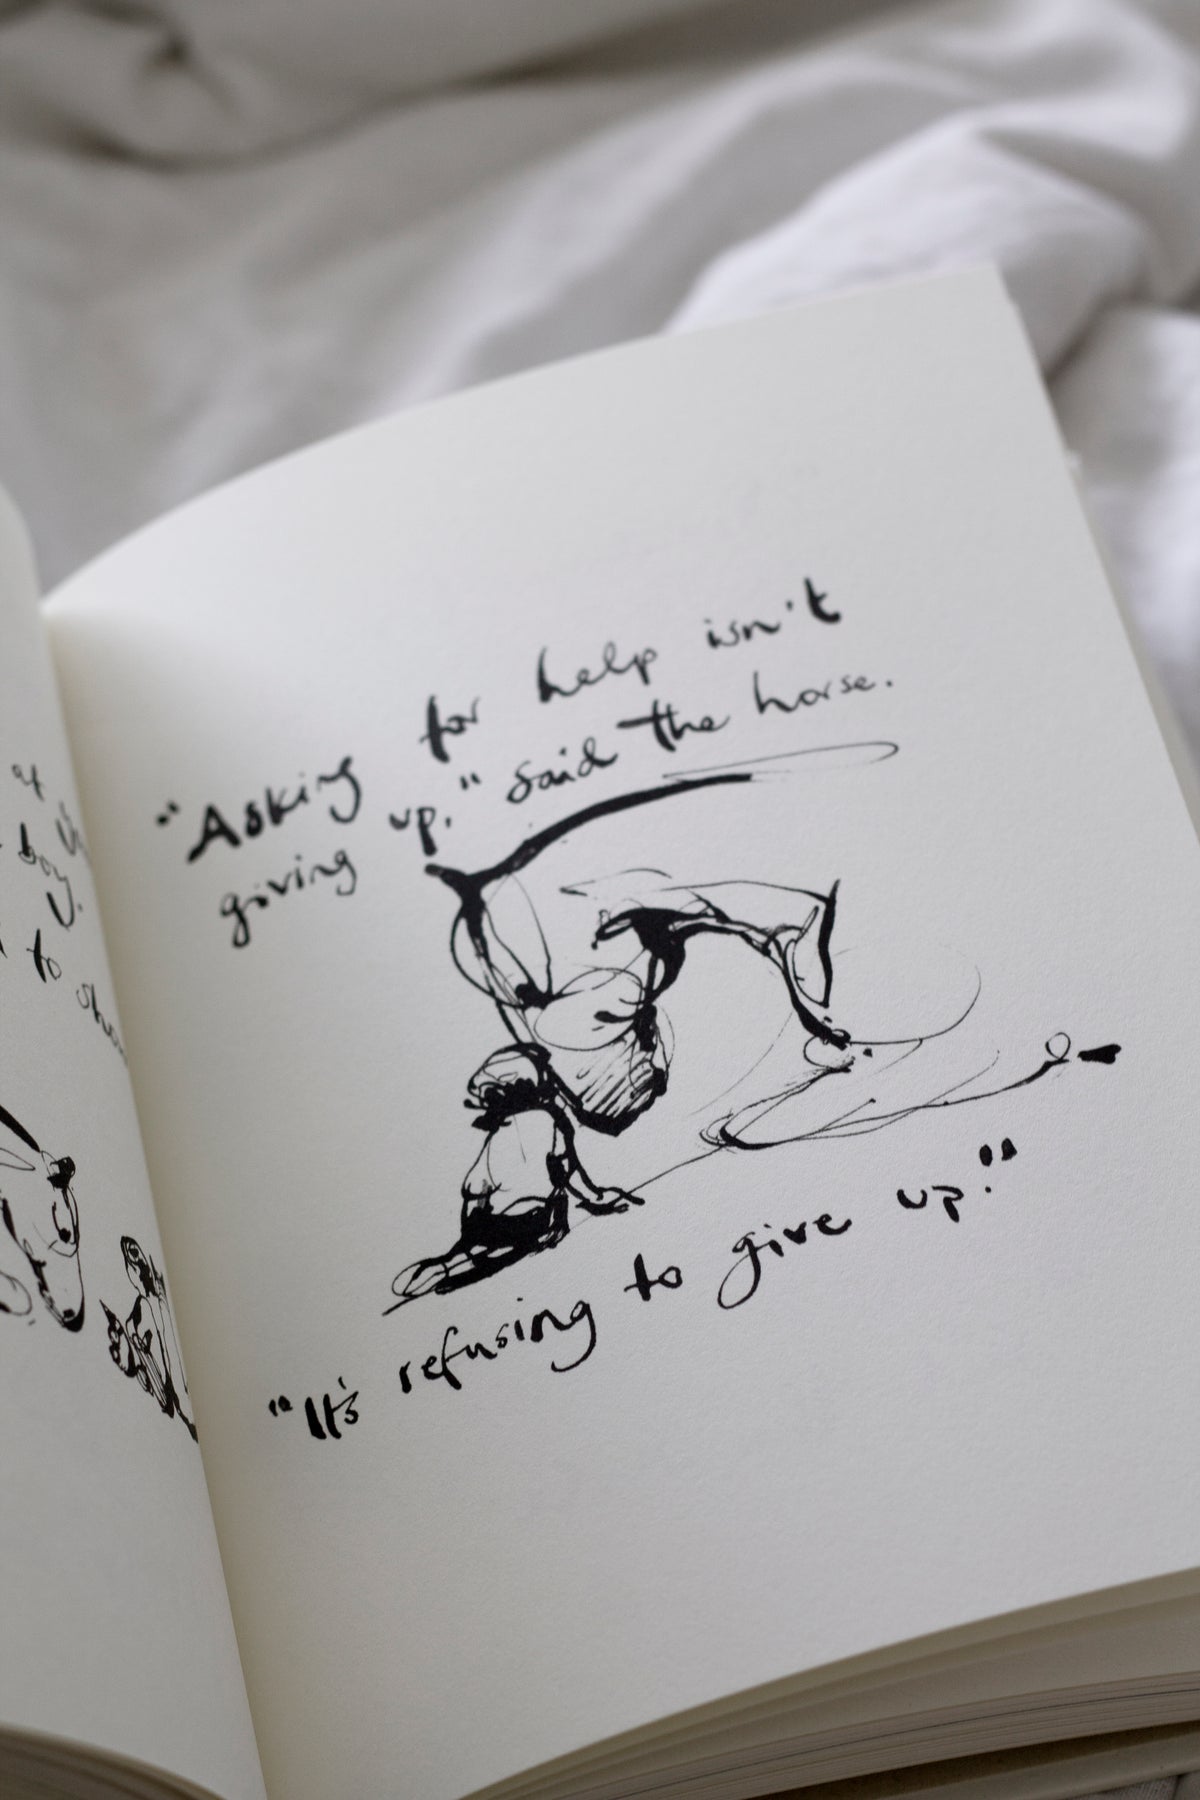 at
boy.
to
"Asking for help isn't
giving up." said the horse.
"It's refusing to give up."